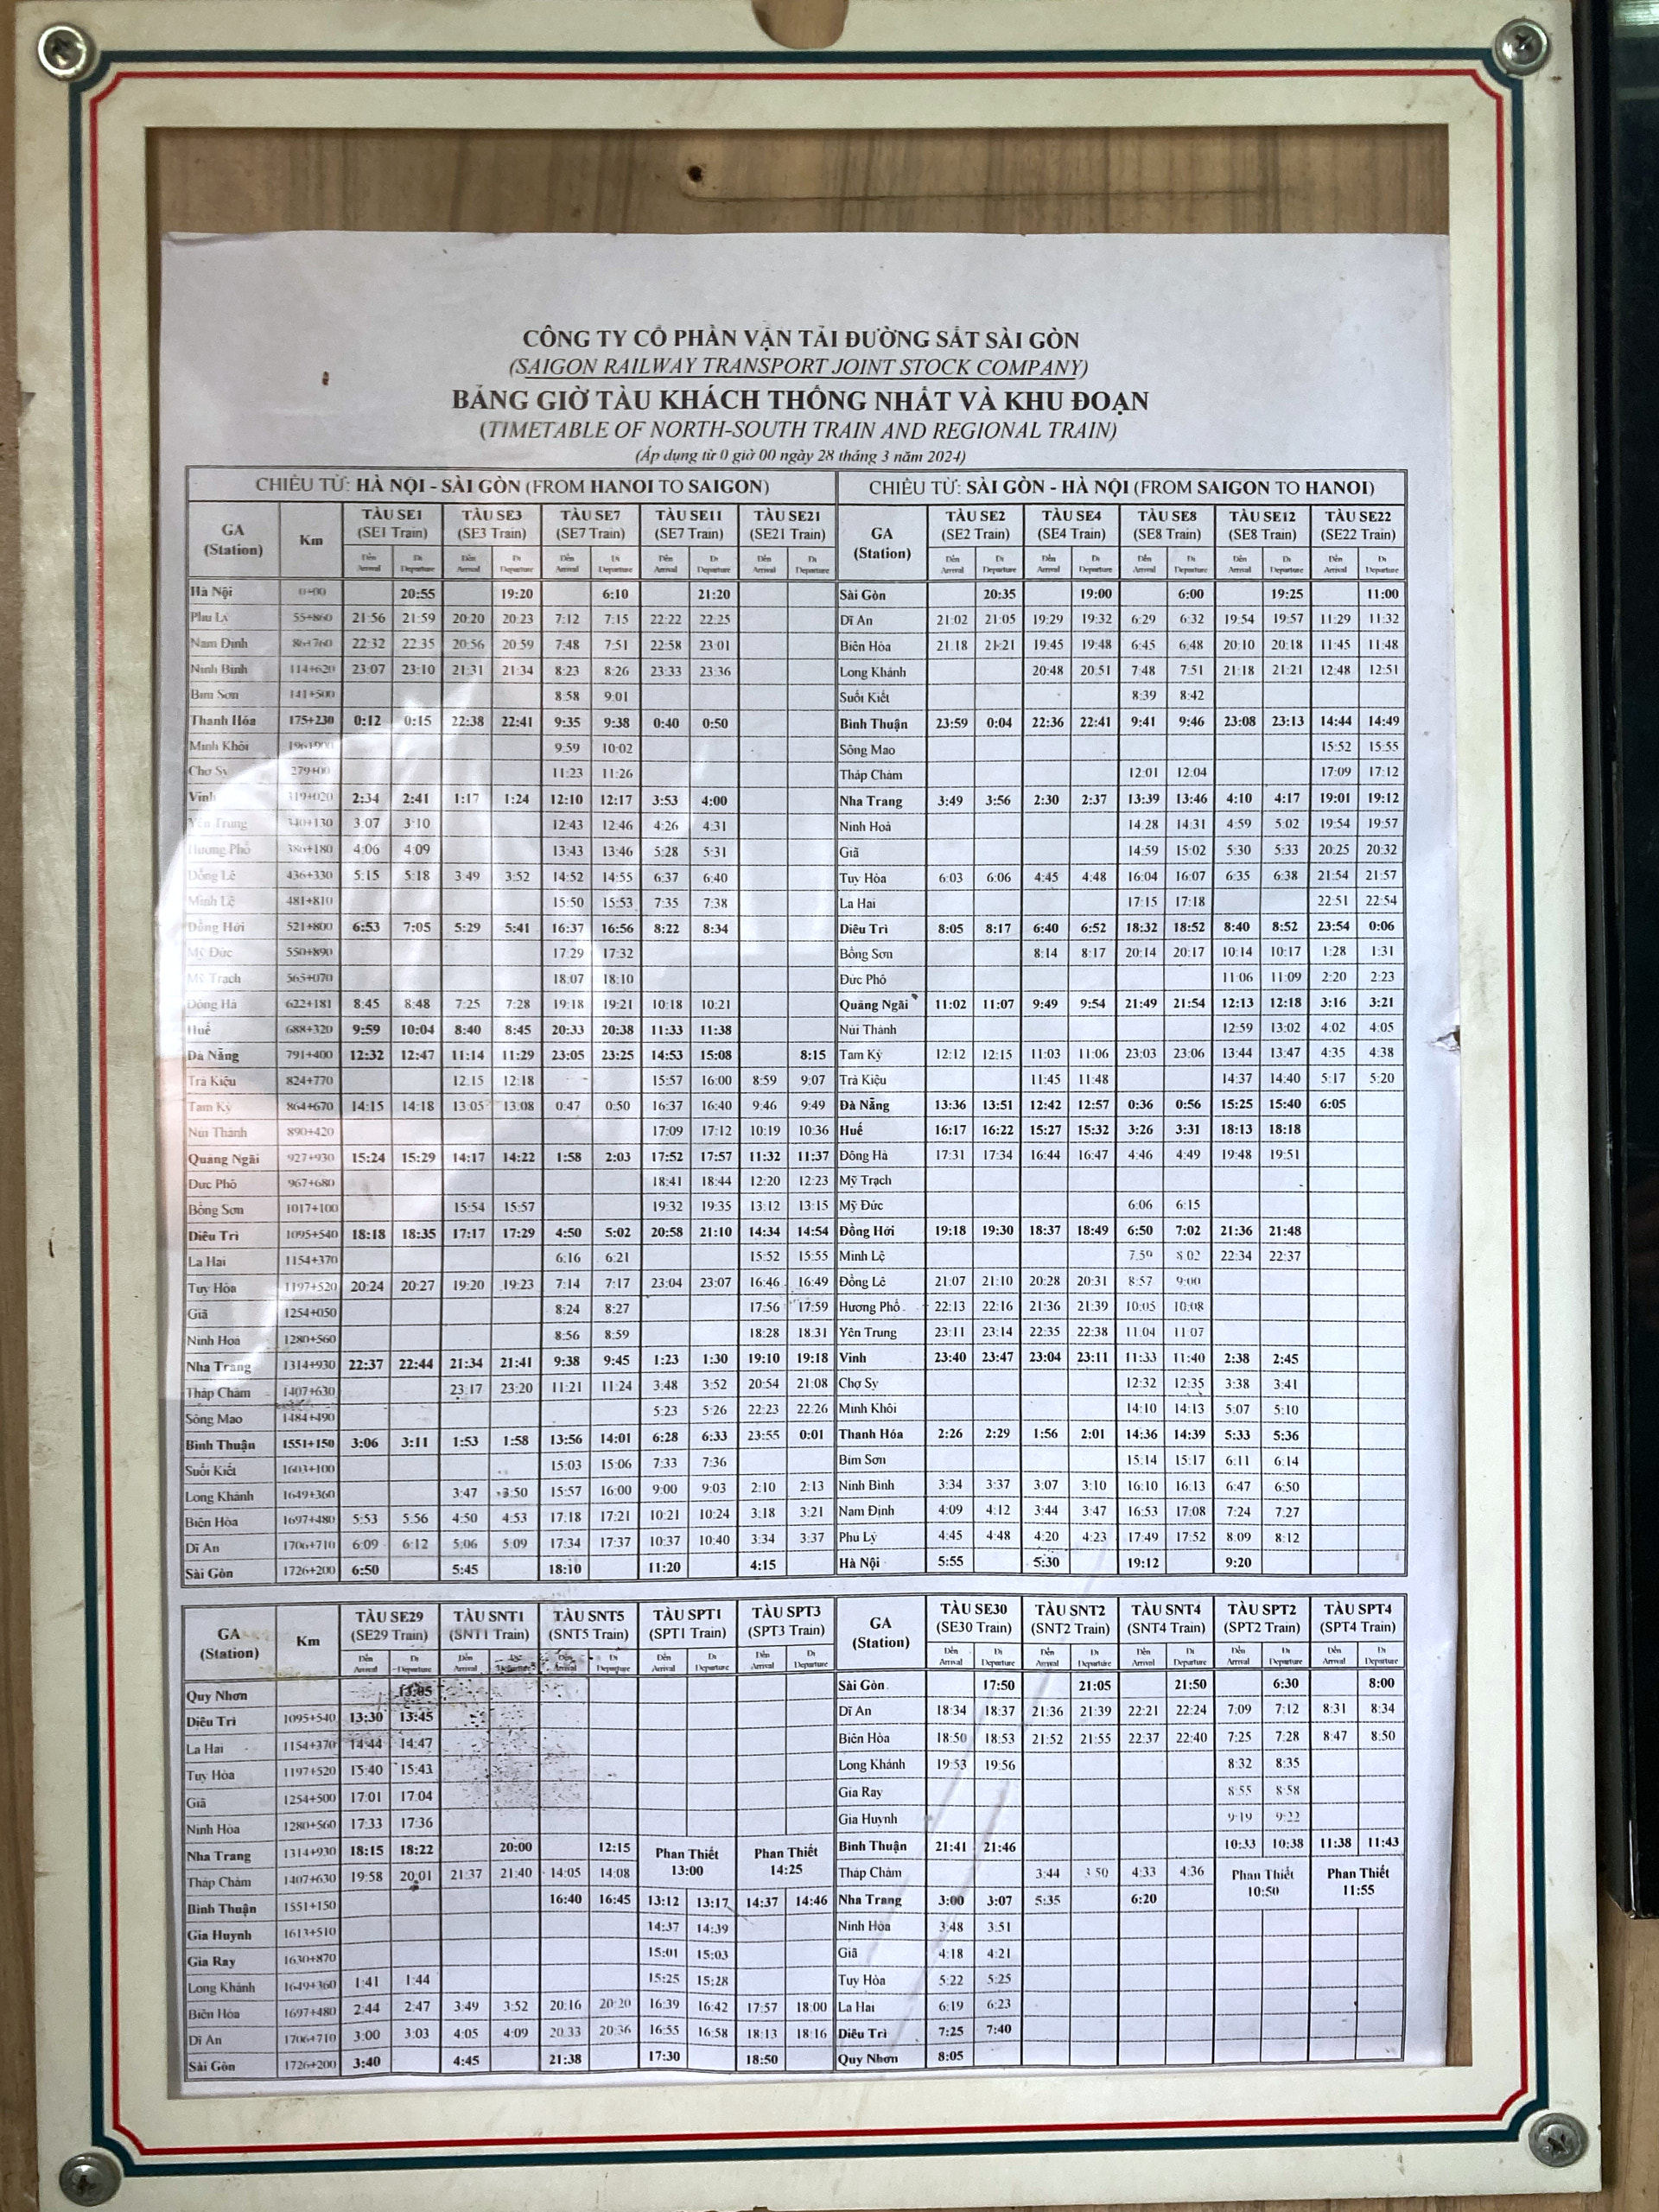 CÔNG TY CỔ PHẦN VẬN TẢI ĐƯỜNG SẮT SÀI GÒN
(SAIGON RAILWAY TRANSPORT JOINT STOCK COMPANY)
BẢNG GIỜ TÀU KHÁCH THỐNG NHẤT VÀ KHU ĐOẠN
(TIMETABLE OF NORTH-SOUTH TRAIN AND REGIONAL TRAIN)
(Áp dụng từ 0 giờ 00 ngày 28 tháng 3 năm 2024)
CHIỀU TỪ: HÀ NỘI - SÀI GÒN (FROM HANOI TO SAIGON) CHIỀU TỪ: SÀI GÒN - HÀ NỘI (FROM SAIGON TO HANOI)
GA (Station) Km TÀU SE1 (SE1 Train) TÀU SE3 (SE3 Train) TÀU SE7 (SE7 Train) TÀU SE11 (SE7 Train) TÀU SE21 (SE21 Train) GA (Station) TÀU SE2 (SE2 Train) TÀU SE4 (SE4 Train) TÀU SE8 (SE8 Train) TÀU SE12 (SE8 Train) TÀU SE22 (SE22 Train)
Đến Arrival Đi Departure Đến Arrival Đi Departure Đến Arrival Đi Departure Đến Arrival Đi Departure Đến Arrival Đi Departure Đến Arrival Đi Departure Đến Arrival Đi Departure Đến Arrival Đi Departure Đến Arrival Đi Departure Đến Arrival Đi Departure
Hà Nội 0+00 20:55 19:20 6:10 21:20 Sài Gòn 20:35 19:00 6:00 19:25 11:00
Phủ Lý 55+860 21:56 21:59 20:20 20:23 7:12 7:15 22:22 22:25 Dĩ An 21:02 21:05 19:29 19:32 6:29 6:32 19:54 19:57 11:29 11:32
Nam Định 86+760 22:32 22:35 20:56 20:59 7:48 7:51 22:58 23:01 Biên Hòa 21:18 21:21 19:45 19:48 6:45 6:48 20:10 20:18 11:45 11:48
Ninh Bình 114+620 23:07 23:10 21:31 21:34 8:23 8:26 23:33 23:36 Long Khánh 20:48 20:51 7:48 7:51 21:18 21:21 12:48 12:51
Bỉm Sơn 141+500 8:58 9:01 Suối Kiết 8:39 8:42
Thanh Hóa 175+230 0:12 0:15 22:38 22:41 9:35 9:38 0:40 0:50 Bình Thuận 23:59 0:04 22:36 22:41 9:41 9:46 23:08 23:13 14:44 14:49
Minh Khôi 9:59 10:02 Sông Mao 15:52 15:55
Chợ Sy 279+00 11:23 11:26 Tháp Chàm 12:01 12:04 17:09 17:12
Vinh 319+020 2:34 2:41 1:17 1:24 12:10 12:17 3:53 4:00 Nha Trang 3:49 3:56 2:30 2:37 13:39 13:46 4:10 4:17 19:01 19:12
Yên Trung 340+130 3:07 3:10 12:43 12:46 4:26 4:31 Ninh Hoà 14:28 14:31 4:59 5:02 19:54 19:57
Hương Phố 386+180 4:06 4:09 13:43 13:46 5:28 5:31 Giã 14:59 15:02 5:30 5:33 20:25 20:32
Đồng Lê 436+330 5:15 5:18 3:49 3:52 14:52 14:55 6:37 6:40 Tuy Hòa 6:03 6:06 4:45 4:48 16:04 16:07 6:35 6:38 21:54 21:57
Minh Lệ 481+810 15:50 15:53 7:35 7:38 La Hai 17:15 17:18 22:51 22:54
Đồng Hới 521+800 6:53 7:05 5:29 5:41 16:37 16:56 8:22 8:34 Diêu Trì 8:05 8:17 6:40 6:52 18:32 18:52 8:40 8:52 23:54 0:06
Mỹ Đức 550+890 17:29 17:32 Bồng Sơn 8:14 8:17 20:14 20:17 10:14 10:17 1:28 1:31
Mỹ Trạch 565+070 18:07 18:10 Đức Phổ 11:06 11:09 2:20 2:23
Đông Hà 622+181 8:45 8:48 7:25 7:28 19:18 19:21 10:18 10:21 Quảng Ngãi 11:02 11:07 9:49 9:54 21:49 21:54 12:13 12:18 3:16 3:21
Huế 688+320 9:59 10:04 8:40 8:45 20:33 20:38 11:33 11:38 Núi Thành 12:59 13:02 4:02 4:05
Đà Nẵng 791+400 12:32 12:47 11:14 11:29 23:05 23:25 14:53 15:08 8:15 Tam Kỳ 12:12 12:15 11:03 11:06 23:03 23:06 13:44 13:47 4:35 4:38
Trà Kiệu 824+770 12:15 12:18 15:57 16:00 8:59 9:07 Trà Kiệu 11:45 11:48 14:37 14:40 5:17 5:20
Tam Kỳ 864+670 14:15 14:18 13:05 13:08 0:47 0:50 16:37 16:40 9:46 9:49 Đà Nẵng 13:36 13:51 12:42 12:57 0:36 0:56 15:25 15:40 6:05
Núi Thành 890+420 17:09 17:12 10:19 10:36 Huế 16:17 16:22 15:27 15:32 3:26 3:31 18:13 18:18
Quảng Ngãi 927+930 15:24 15:29 14:17 14:22 1:58 2:03 17:52 17:57 11:32 11:37 Đông Hà 17:31 17:34 16:44 16:47 4:46 4:49 19:48 19:51
Đức Phổ 967+680 18:41 18:44 12:20 12:23 Mỹ Trạch
Bồng Sơn 1017+100 15:54 15:57 19:32 19:35 13:12 13:15 Mỹ Đức 6:06 6:15
Diêu Trì 1095+540 18:18 18:35 17:17 17:29 4:50 5:02 20:58 21:10 14:34 14:54 Đồng Hới 19:18 19:30 18:37 18:49 6:50 7:02 21:36 21:48
La Hai 1154+370 6:16 6:21 15:52 15:55 Minh Lệ 7:59 8:02 22:34 22:37
Tuy Hòa 1197+520 20:24 20:27 19:20 19:23 7:14 7:17 23:04 23:07 16:46 16:49 Đồng Lê 21:07 21:10 20:28 20:31 8:57 9:00
Giã 1254+050 8:24 8:27 17:56 17:59 Hương Phố 22:13 22:16 21:36 21:39 10:05 10:08
Ninh Hoà 1280+560 8:56 8:59 18:28 18:31 Yên Trung 23:11 23:14 22:35 22:38 11:04 11:07
Nha Trang 1314+930 22:37 22:44 21:34 21:41 9:38 9:45 1:23 1:30 19:10 19:18 Vinh 23:40 23:47 23:04 23:11 11:33 11:40 2:38 2:45
Tháp Chàm 1407+630 23:17 23:20 11:21 11:24 3:48 3:52 20:54 21:08 Chợ Sy 12:32 12:35 3:38 3:41
Sông Mao 1484+490 5:23 5:26 22:23 22:26 Minh Khôi 14:10 14:13 5:07 5:10
Bình Thuận 1551+150 3:06 3:11 1:53 1:58 13:56 14:01 6:28 6:33 23:55 0:01 Thanh Hóa 2:26 2:29 1:56 2:01 14:36 14:39 5:33 5:36
Suối Kiết 1603+100 15:03 15:06 7:33 7:36 Bỉm Sơn 15:14 15:17 6:11 6:14
Long Khánh 1649+360 3:47 3:50 15:57 16:00 9:00 9:03 2:10 2:13 Ninh Bình 3:34 3:37 3:07 3:10 16:10 16:13 6:47 6:50
Biên Hòa 1697+480 5:53 5:56 4:50 4:53 17:18 17:21 10:21 10:24 3:18 3:21 Nam Định 4:09 4:12 3:44 3:47 16:53 17:08 7:24 7:27
Dĩ An 1706+710 6:09 6:12 5:06 5:09 17:34 17:37 10:37 10:40 3:34 3:37 Phủ Lý 4:45 4:48 4:20 4:23 17:49 17:52 8:09 8:12
Sài Gòn 1726+200 6:50 5:45 18:10 11:20 4:15 Hà Nội 5:55 5:30 19:12 9:20
GA (Station) Km TÀU SE29 (SE29 Train) TÀU SNT1 (SNT1 Train) TÀU SNT5 (SNT5 Train) TÀU SPT1 (SPT1 Train) TÀU SPT3 (SPT3 Train) GA (Station) TÀU SE30 (SE30 Train) TÀU SNT2 (SNT2 Train) TÀU SNT4 (SNT4 Train) TÀU SPT2 (SPT2 Train) TÀU SPT4 (SPT4 Train)
Đến Arrival Đi Departure Đến Arrival Đi Departure Đến Arrival Đi Departure Đến Arrival Đi Departure Đến Arrival Đi Departure Đến Arrival Đi Departure Đến Arrival Đi Departure Đến Arrival Đi Departure Đến Arrival Đi Departure Đến Arrival Đi Departure
Quy Nhơn Sài Gòn 17:50 21:05 21:50 6:30 8:00
Diêu Trì 1095+540 13:30 13:45 Dĩ An 18:34 18:37 21:36 21:39 22:21 22:24 7:09 7:12 8:31 8:34
La Hai 1154+370 14:44 14:47 Biên Hòa 18:50 18:53 21:52 21:55 22:37 22:40 7:25 7:28 8:47 8:50
Tuy Hòa 1197+520 15:40 15:43 Long Khánh 19:53 19:56 8:32 8:35
Giã 1254+500 17:01 17:04 Gia Ray 8:55 8:58
Ninh Hòa 1280+560 17:33 17:36 Gia Huynh 9:19 9:22
Nha Trang 1314+930 18:15 18:22 20:00 12:15 Phan Thiết 13:00 Phan Thiết 14:25 Bình Thuận 21:41 21:46 10:33 10:38 11:38 11:43
Tháp Chàm 1407+630 19:58 20:01 21:37 21:40 14:05 14:08 Tháp Chàm 3:44 3:50 4:33 4:36 Phan Thiết 10:50 Phan Thiết 11:55
Bình Thuận 1551+150 16:40 16:45 13:12 13:17 14:37 14:46 Nha Trang 3:00 3:07 5:35 6:20
Gia Huynh 1613+510 14:37 14:39 Ninh Hòa 3:48 3:51
Gia Ray 1630+870 15:01 15:03 Giã 4:18 4:21
Long Khánh 1649+360 1:41 1:44 15:25 15:28 Tuy Hòa 5:22 5:25
Biên Hòa 1697+480 2:44 2:47 3:49 3:52 20:16 20:20 16:39 16:42 17:57 18:00 La Hai 6:19 6:23
Dĩ An 1706+710 3:00 3:03 4:05 4:09 20:33 20:36 16:55 16:58 18:13 18:16 Diêu Trì 7:25 7:40
Sài Gòn 1726+200 3:40 4:45 21:38 17:30 18:50 Quy Nhơn 8:05